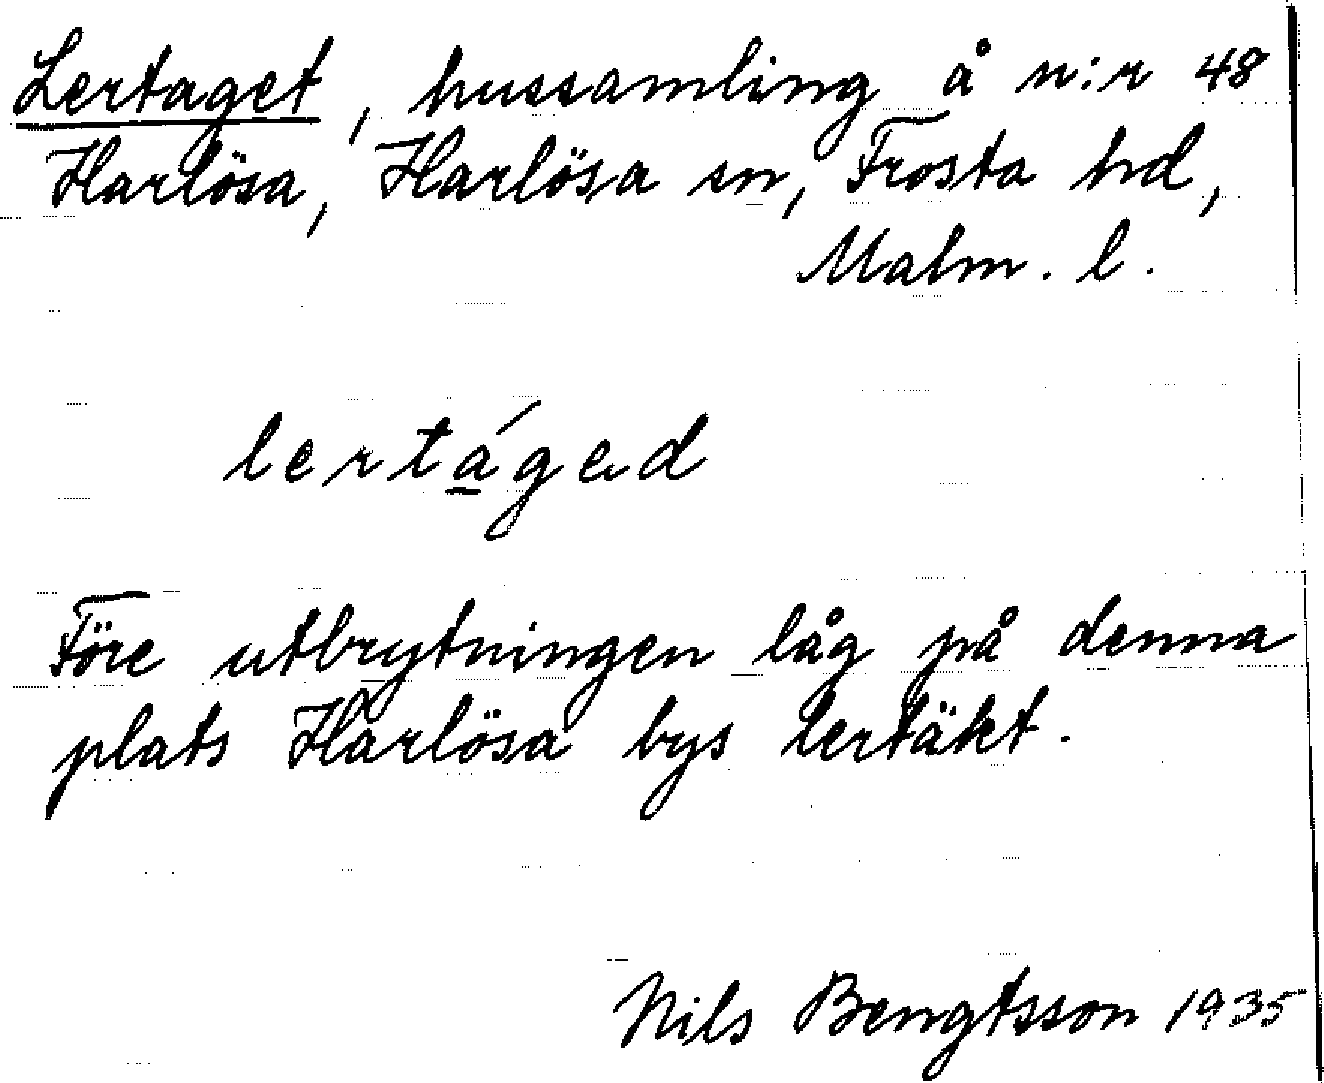 Lertaget, hussamling å n:r 48
Harlösa, Harlösa sn, Frosta hd,
Malm. l.
lertáged
Före utbrytningen låg på denna
plats Harlösa bys lertäkt.
Nils Bengtsson 1935